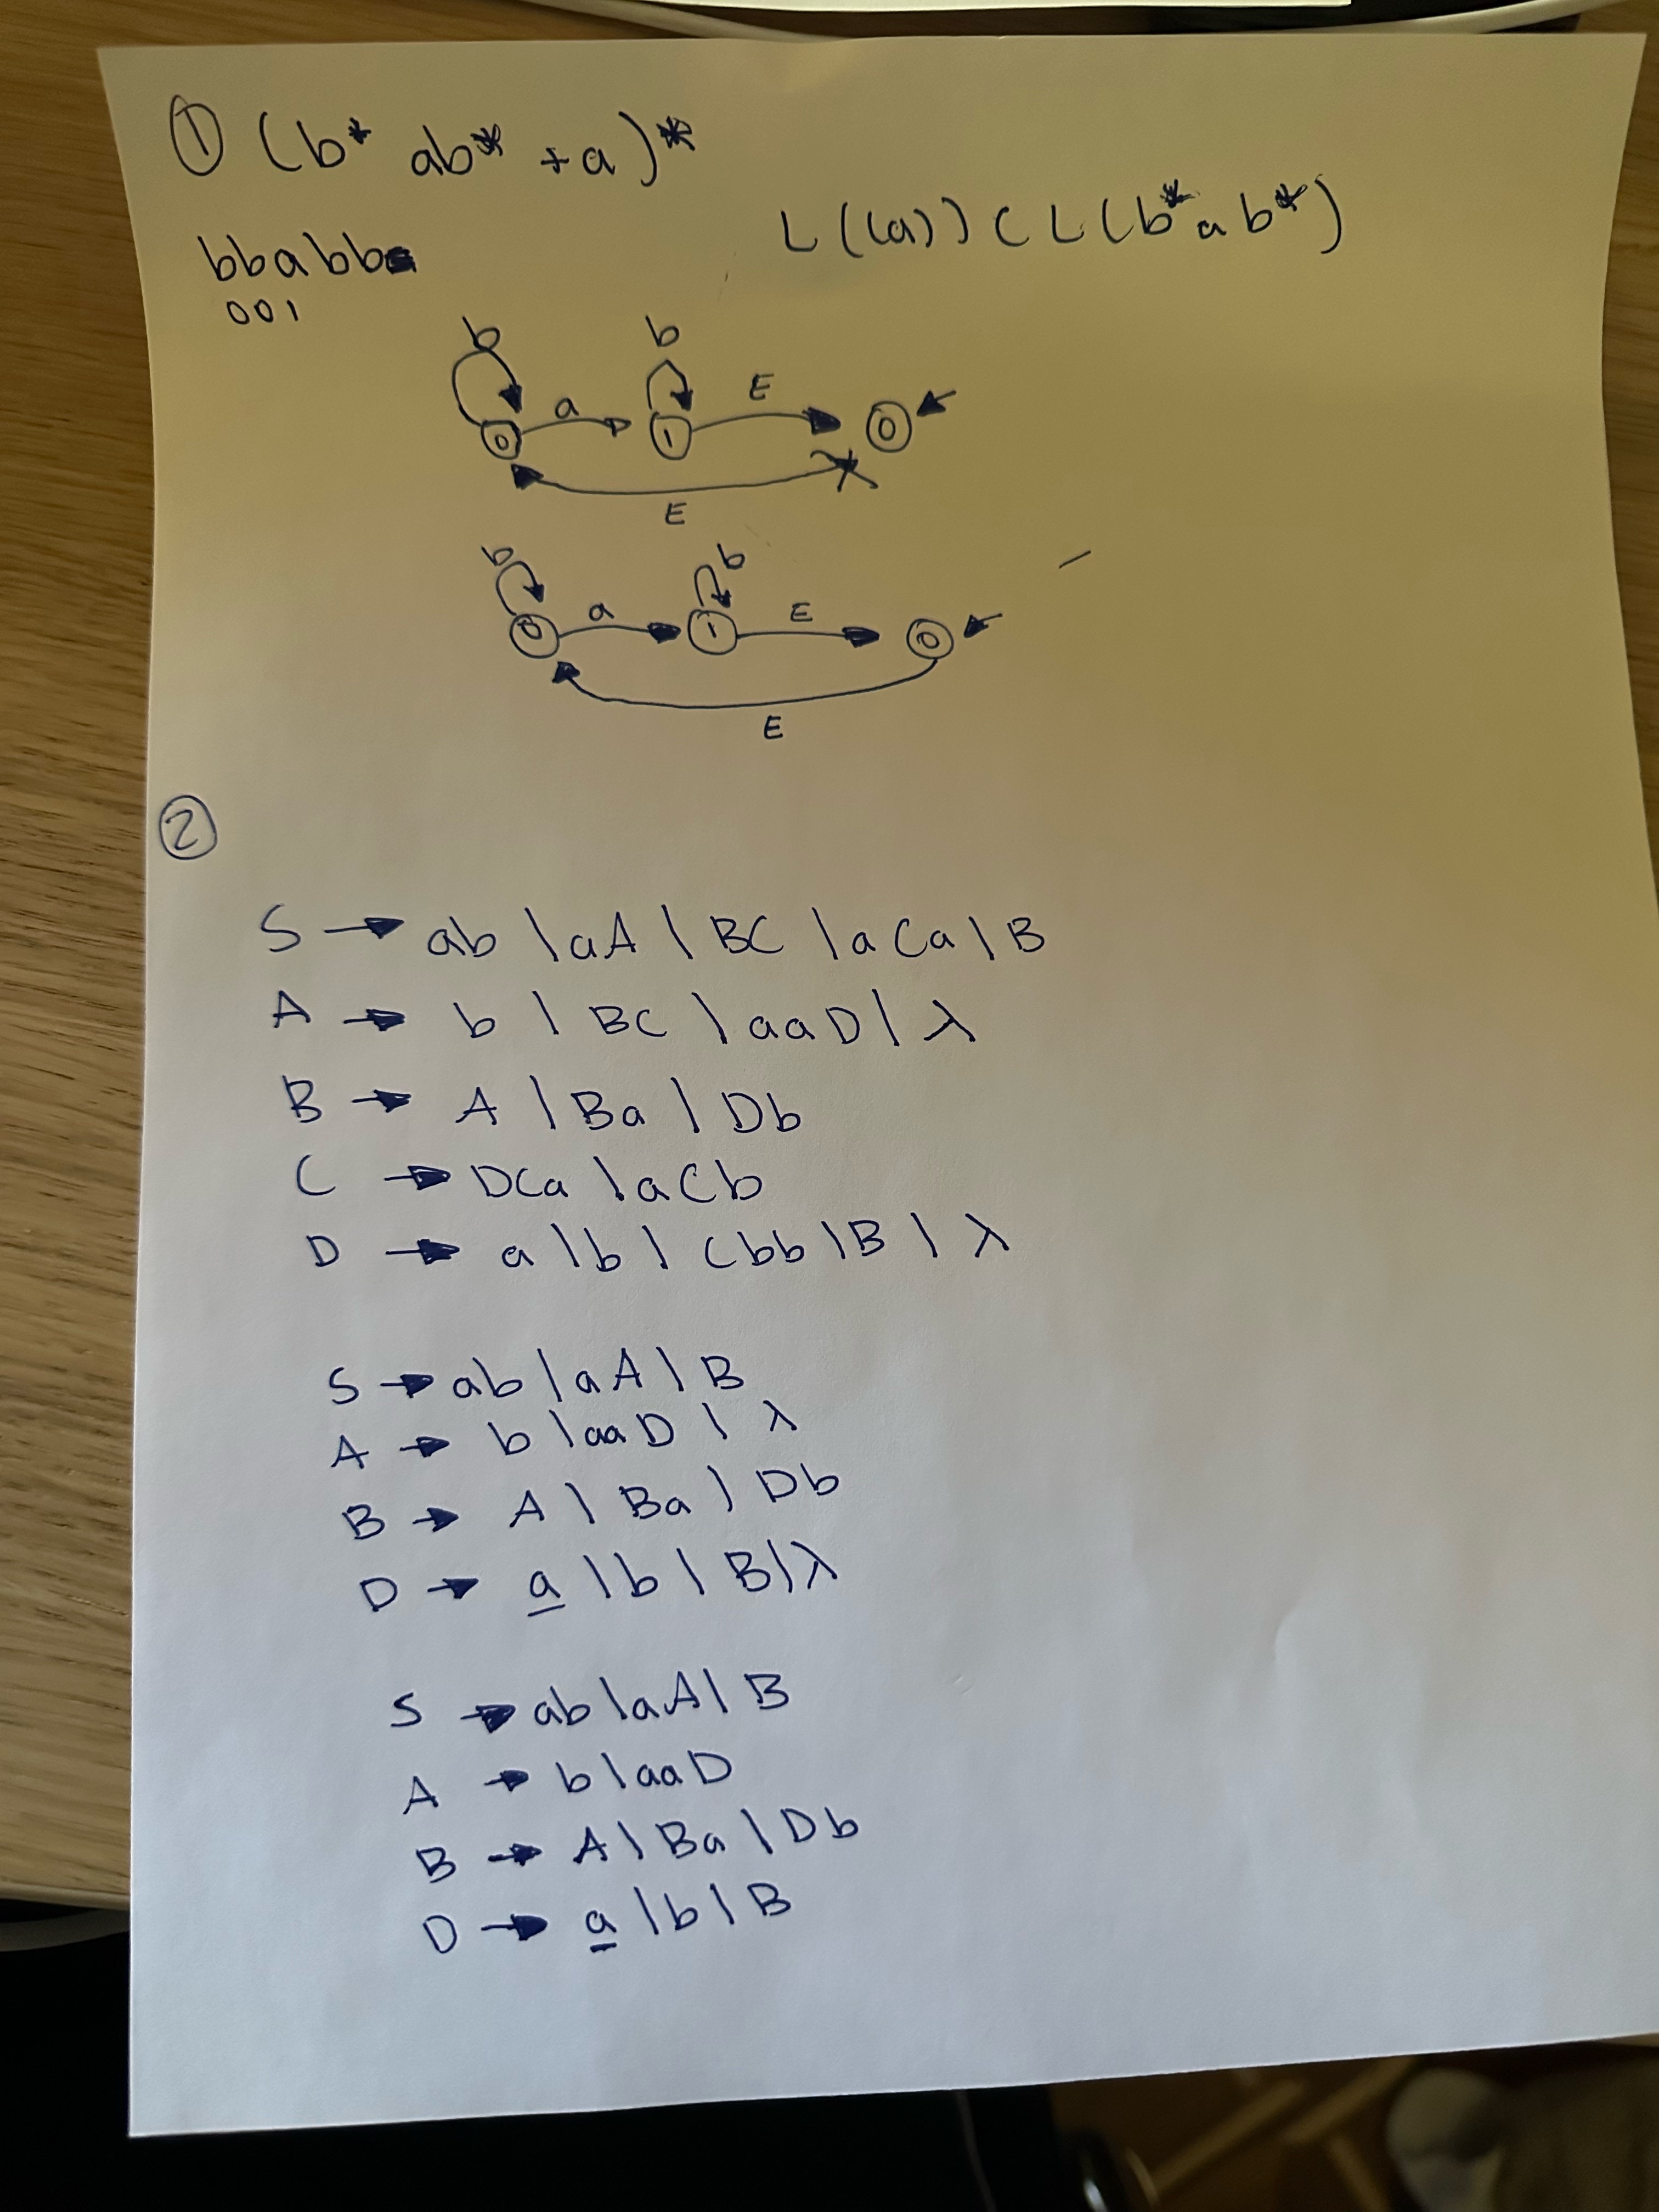 ① (b* ab* + a)*
L((a)) ⊂ L(b*ab*)
bbabb
001
b b
0 a 1 E 0
E
b b
0 a 1 E 0
E
②
S → ab | aA | BC | aCa | B
A → b | BC | aaD | λ
B → A | Ba | Db
C → DCa | aCb
D → a | b | Cbb | B | λ
S → ab | aA | B
A → b | aaD | λ
B → A | Ba | Db
D → a | b | B | λ
S → ab | aA | B
A → b | aaD
B → A | Ba | Db
D → a | b | B